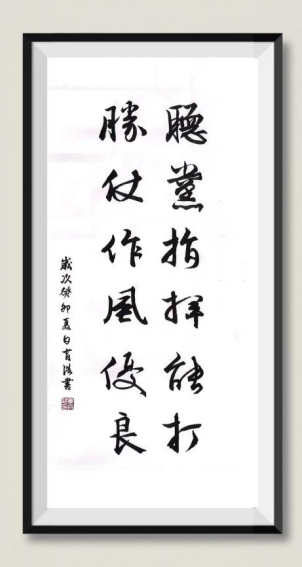 聽黨指揮能打
勝仗作風優良
歲次癸卯夏白育浩書